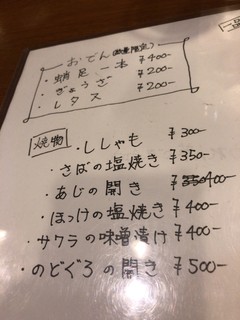 おでん(数量限定)
・蛸足一本 ¥400-
・ぎょうざ ¥200-
・レタス ¥200-
焼物
・ししゃも ¥300-
・さばの塩焼き ¥350-
・あじの開き ¥400-
・ほっけの塩焼き ¥400-
・サワラの味噌漬け ¥400-
・のどぐろの開き ¥500-